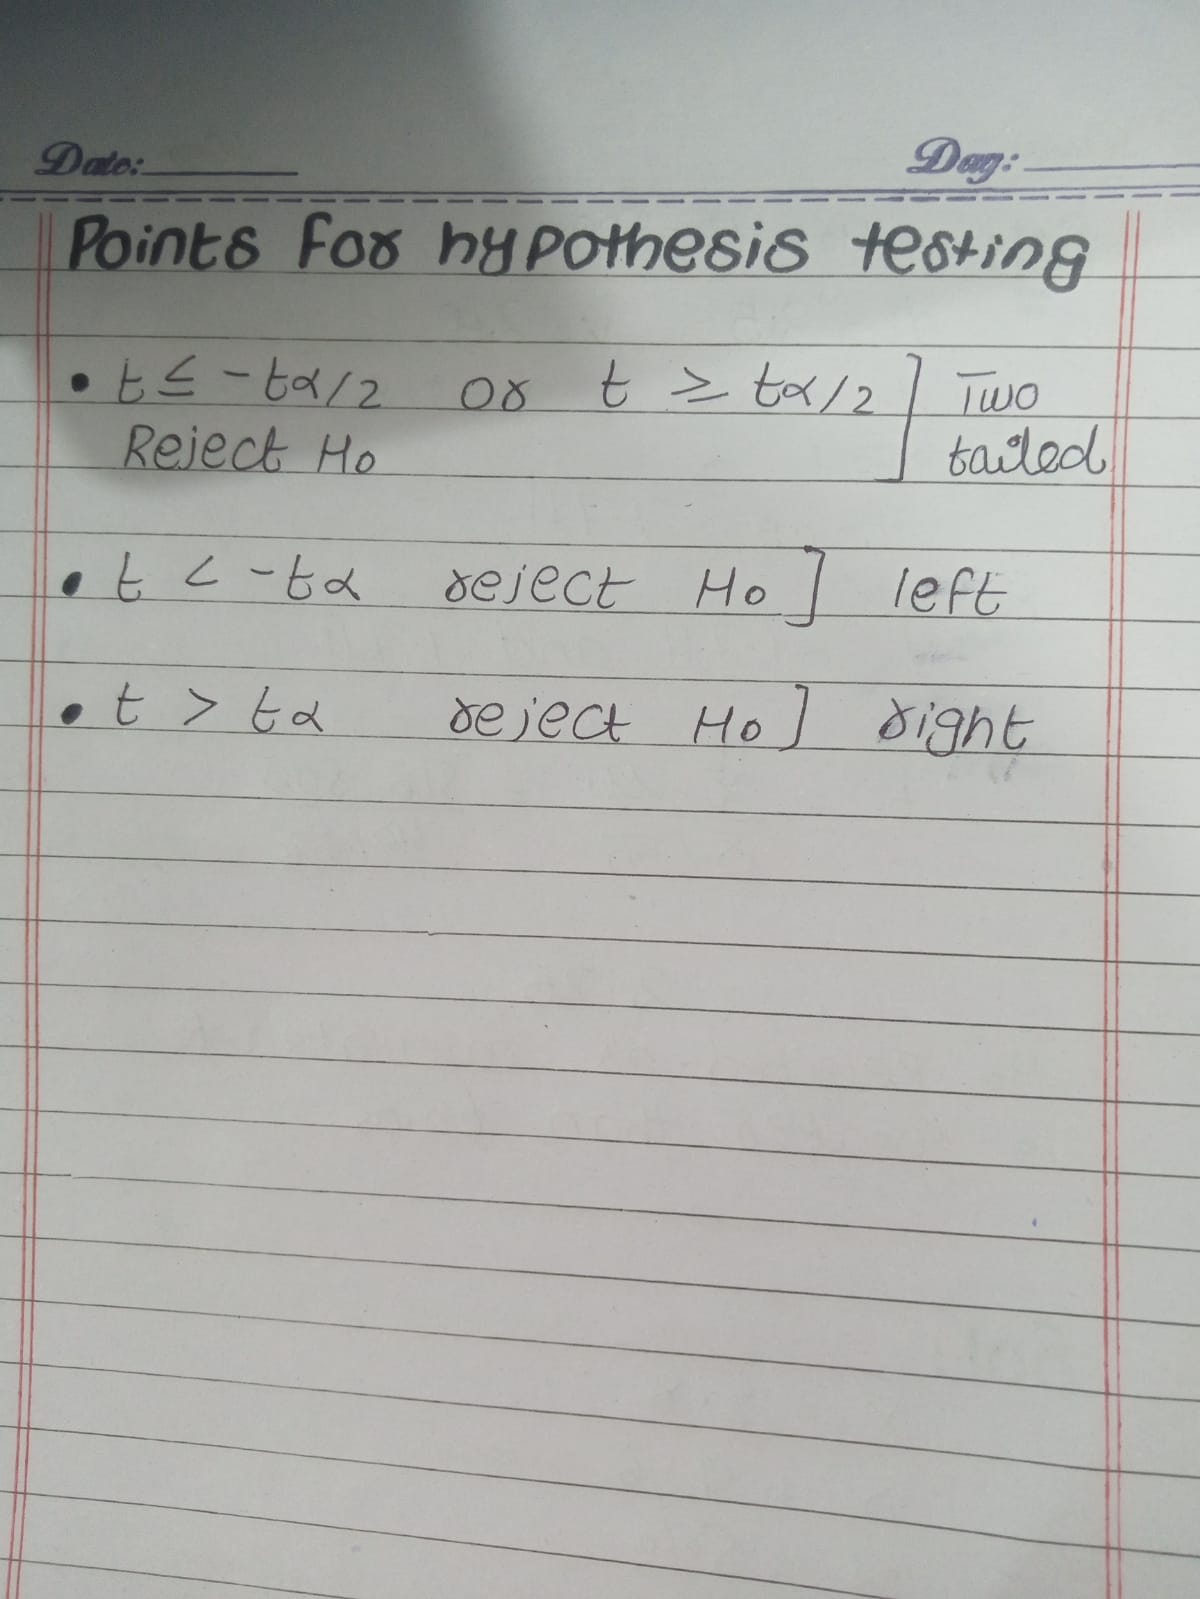 Date: Day:
Points for hypothesis testing
• t ≤ -tα/2 or t ≥ tα/2 ] Two
Reject Ho tailed
• t < -tα reject Ho ] left
• t > tα reject Ho ] right